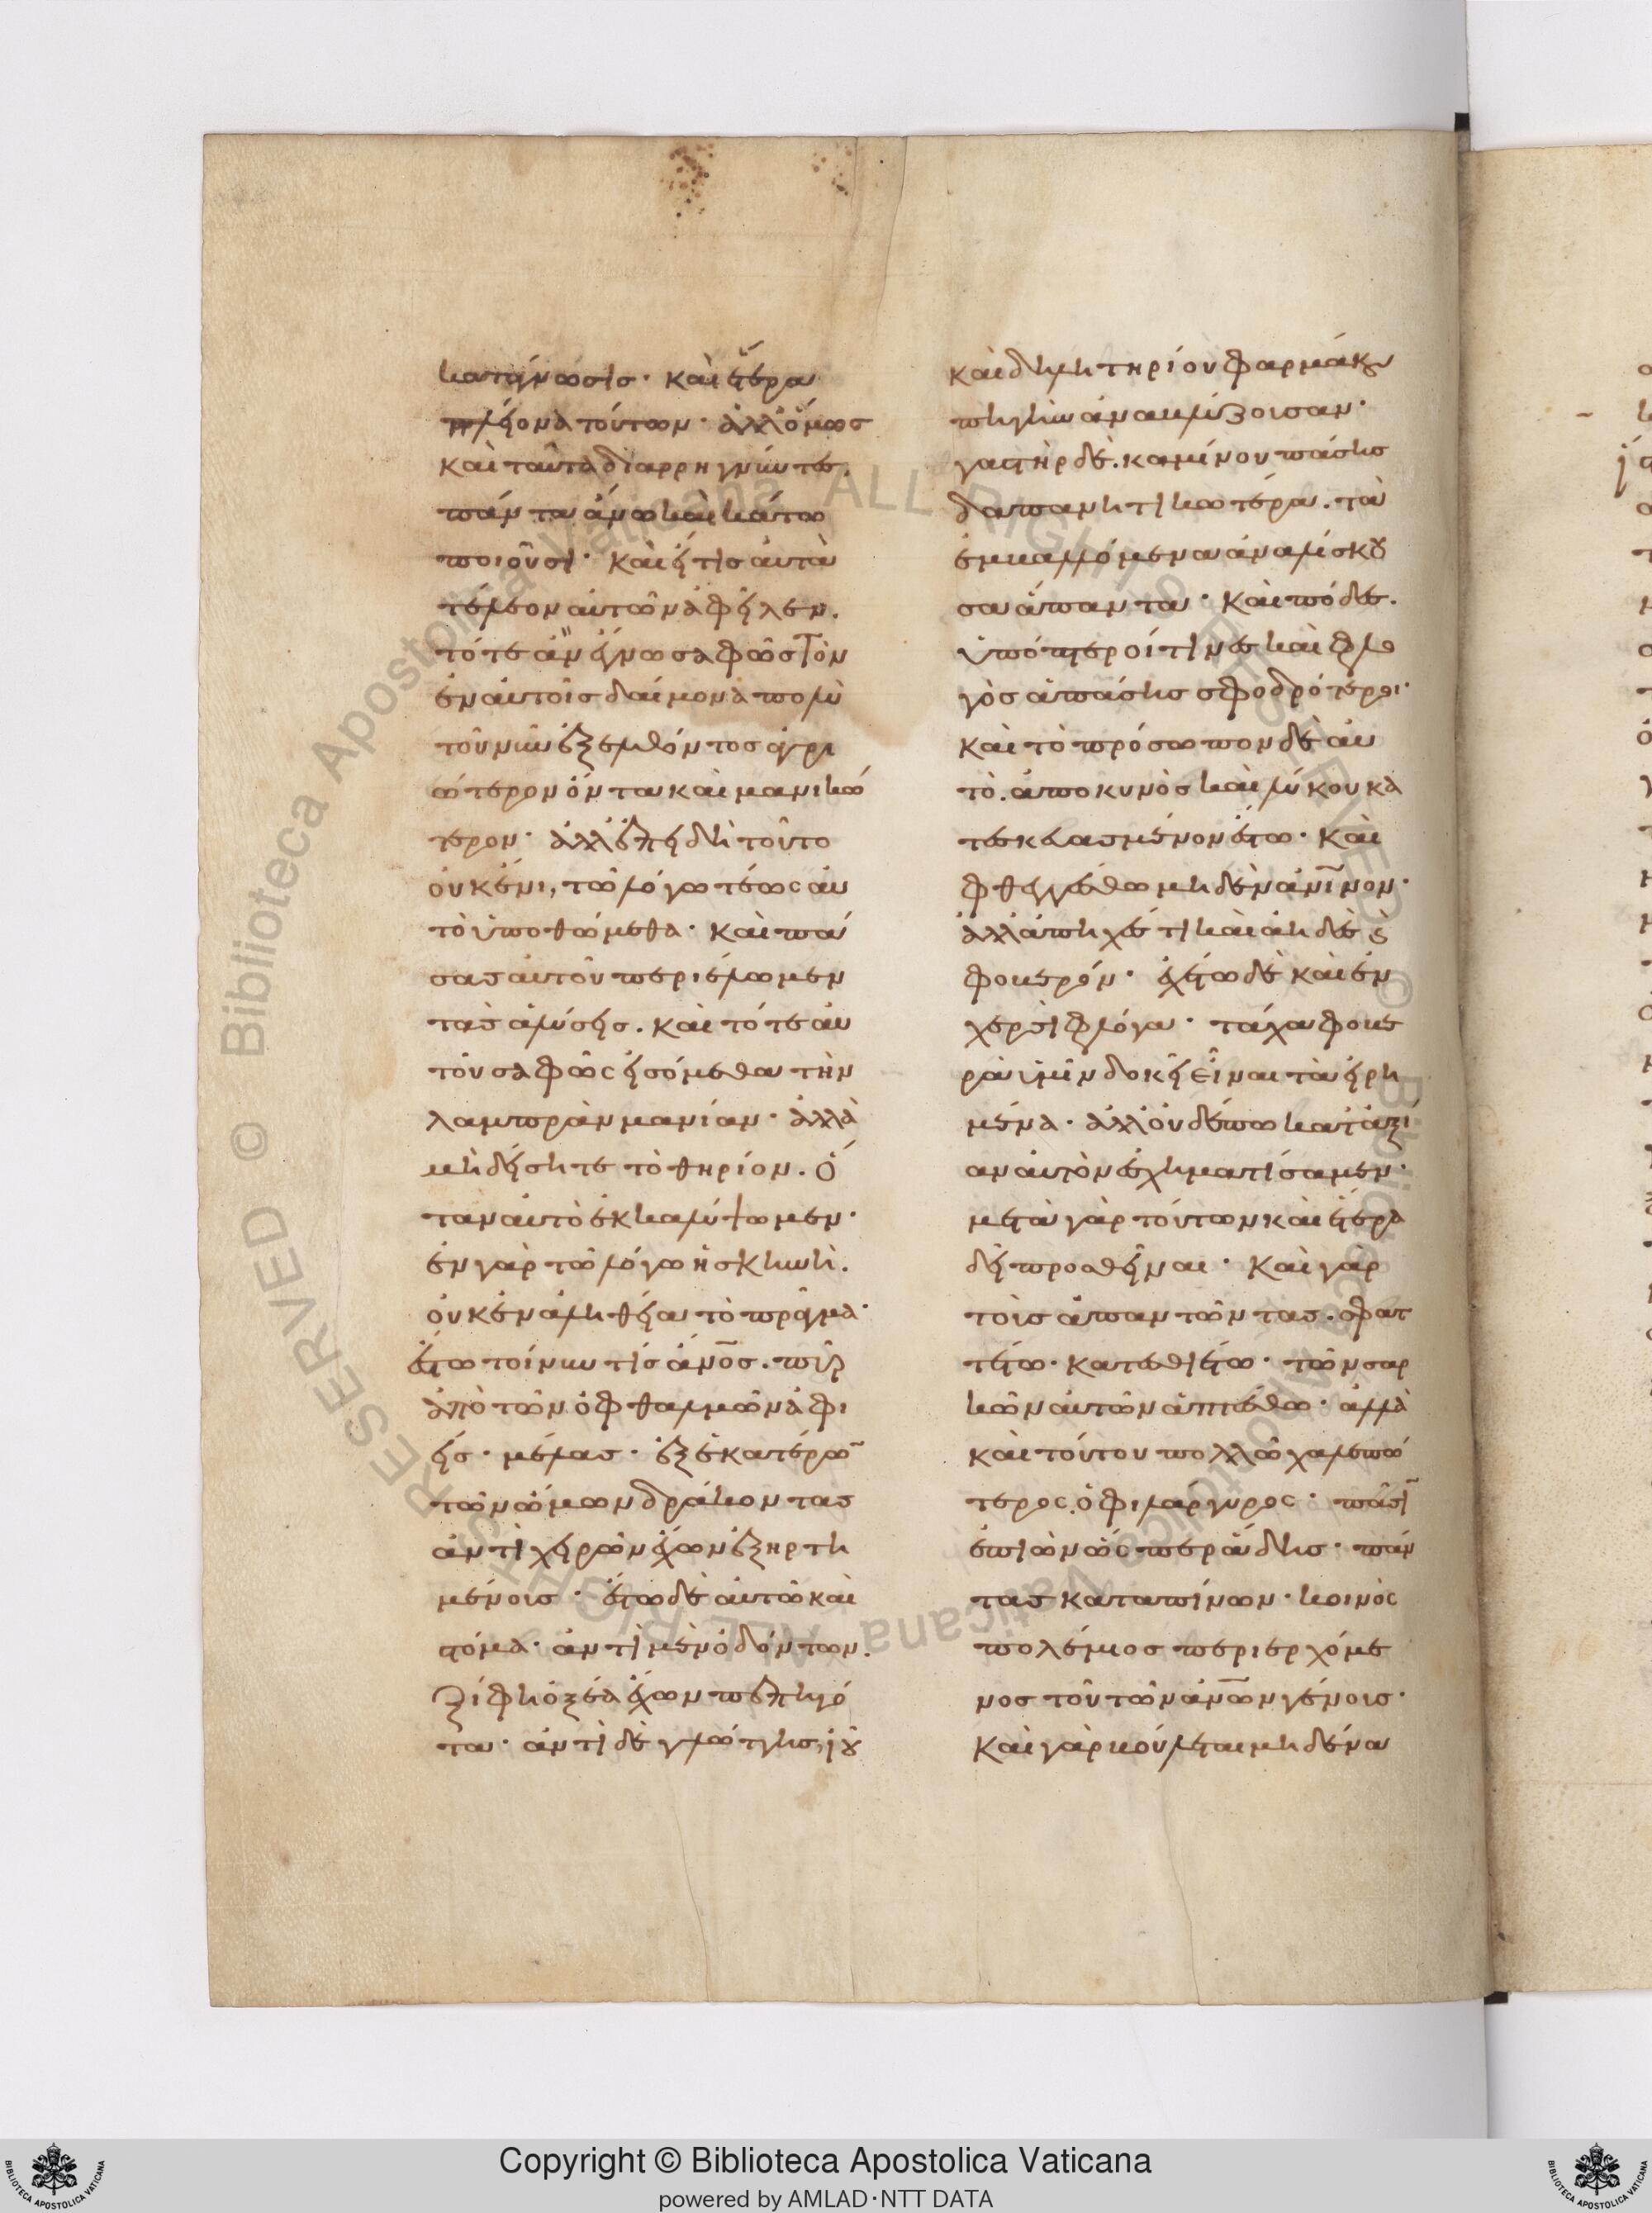 κατηγνώσις· καὶ ἕτερα
πλείονα τούτων· ἀλλ' ὅμως
καὶ ταῦτα διαρρηγνύντες.
πάντα ἄνω καὶ κάτω
ποιοῦσι· καὶ εἴ τις αὐτὰ
τέλεον αὐτῶν ἀφεῖλεν.
τότε ἂν ἔγνω σαφῶς τὸν
ἐν αὐτοῖς δαίμονα πολὺ
τοῦ νῦν ἐξελθόντος ἀγρι
ώτερον ὄντα καὶ μανικώ
τερον· ἀλλ' ἐπειδὴ τοῦτο
οὐκ ἔνι, τῶ λόγω τέως αὐ
τὸ ὑποθώμεθα· καὶ πά
σας αὐτοῦ περιέλωμεν
τὰς ἁλύσεις. καὶ τότε αὐ
τοῦ σαφῶς εἰσόμεθα τὴν
λαμπρὰν μανίαν· ἀλλὰ
μὴ δείσητε τὸ θηρίον. ὅ
ταν αὐτὸ ἐκκαλύψωμεν·
ἐν γὰρ τῶ λόγω ἡ σκηνή.
οὐκ ἐν ἀληθεία τὸ πρᾶγμα·
ἔστω τοίνυν τίς ἄν̅ος. πῦρ
ἀπὸ τῶν ὀφθαλμῶν ἀφι
είς· μέλας· ἐξ ἑκατέρω̅
τῶν ὤμων δράκοντας
ἀντὶ χειρῶν ἔχων ἐξηρτη
μένους· ἔστω δὲ αὐτῶ καὶ
στόμα· ἀντὶ μὲν ὀδόντων.
ξίφη ὀξέα ἔχων πεπηγό
τα· ἀντὶ δὲ γλώττης, ἰοῦ
καὶ δηλητηρίου φαρμάκου
πηγὴν ἀναβλύζουσαν·
γαστὴρ δὲ. καμίνου πάσης
δαπανητικωτέρα. τὰ
ἐμβαλλόμενα ἀναλίσκου
σα ἅπαντα· καὶ πόδες.
ὑπόπτεροί τινες καὶ φλο
γὸς ἁπάσης σφοδρότεροι·
καὶ τὸ πρόσωπον δὲ αὐ
τὸ. ἀπὸ κυνὸς καὶ λύκου κα
τεσκευασμένον ἔστω· καὶ
φθεγγέσθω μηδὲν ἀν̅ινον·
ἀλλ' ἀπηχές τι καὶ ἀηδὲς
φοβερόν· ἐχέτω δὲ καὶ ἐν
χερσὶ φλόγα· τάχα φοβε
ρὰ ὑμῖν δοκεῖ εἶναι τὰ εἰρη
μένα· ἀλλ' οὐδέπω κατ' ἀξί
αν αὐτὸν ἐσχηματίσαμεν·
μετὰ γὰρ τούτων καὶ ἕτερα
δεῖ προσθεῖναι· καὶ γὰρ
τοὺς ἀπαντῶντας. σφατ
τέτω· κατεσθιέτω· τῶν σαρ
κῶν αὐτῶν ἁπτέσθω· ἀλλὰ
καὶ τούτου πολλῶ χαλεπώ
τερος. ὁ φιλάργυρος· πᾶσι̅
ἐπιὼν ὡς περ ἅδης· πάν
τας καταπίνων· κοινὸς
πολέμιος περιερχόμε
νος τοῦ τῶν ἀν̅ων γένους·
καὶ γὰρ βούλεται μηδένα